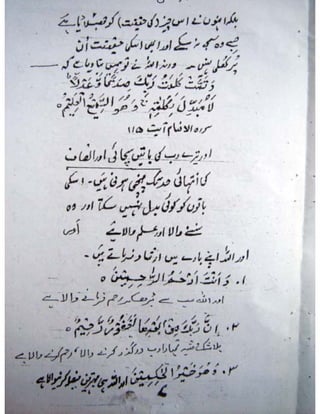 بلکہ انہوں نے اس چیز (کی حقیقت) کو جھٹلایا ہے
جسے وہ سمجھ نہ سکے اور ابھی اسکی حقیقت ان
پر کھلی نہیں ہے۔ ورنہ اللہ نے تو ہمیں بتا دیا ہے کہ
وَتَمَّتْ كَلِمَتُ رَبِّكَ صِدْقًا وَّعَدْلًا
لَا مُبَدِّلَ لِكَلِمٰتِهٖ وَهُوَ السَّمِيْعُ الْعَلِيْمُ ہ
سورہ الانعام آیت ۱۱۵
اور تیرے رب کی باتیں سچائی اور انصاف
کی انتہائی حد تک پہنچی ہوئی ہیں۔ اسکی
باتوں کو کوئی بدل نہیں سکتا اور وہ
سننے والا اور علم والا ہے
اور اللہ اپنے بارے میں ارشاد فرماتے ہیں۔
۱۔ وَاَنْتَ اَرْحَمُ الرّٰحِمِيْنَ ہ
اور اللہ سب سے بڑھکر رحم فرمانے والا ہے
۲۔ اِنَّ رَبَّكَ مِنْۢ بَعْدِهَا لَغَفُوْرٌ رَّحِيْمٌ ہ
بلاشک و شبہ تمہارا رب درگذر کرنے والا، رحم کرنے والا ہے
۳۔ وَهُوَ خَيْرُ الْحٰكِمِيْنَ اور اللہ ہی بہترین فیصلہ کرنیوالا ہے